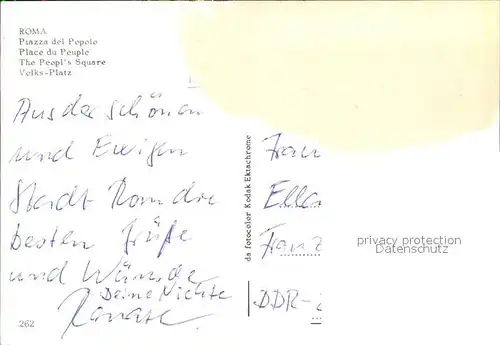 ROMA
Piazza del Popolo
Place du Peuple
The Peopl's Square
Volks-Platz
Aus der schönen
und Ewigen
Stadt Rom die
besten Grüße
und Wünsche
Deine Nichte
Renate
262
da fotocolor Kodak Ektachrome
Frau
Ella
Franz
DDR-
privacy protection
Datenschutz